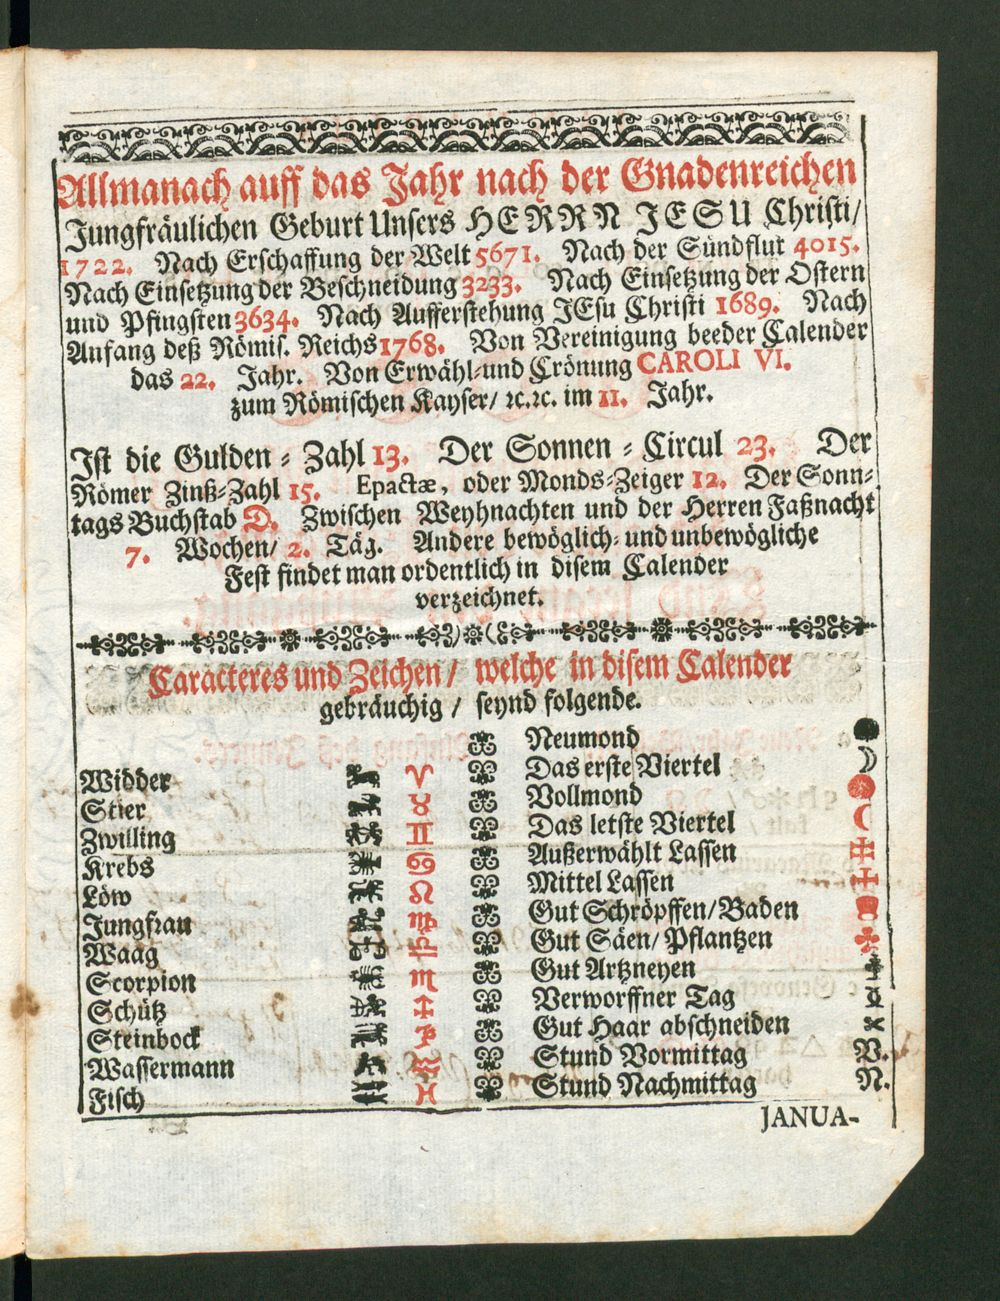 Allmanach auff das Jahr nach der Gnadenreichen
Jungfräulichen Geburt Unsers HERRN JESU Christi/
1722. Nach Erschaffung der Welt 5671. Nach der Sündflut 4015.
Nach Einsetzung der Beschneidung 3233. Nach Einsetzung der Ostern
und Pfingsten 3634. Nach Aufferstehung JEsu Christi 1689. Nach
Anfang deß Römis. Reichs 1768. Von Vereinigung beeder Calender
das 22. Jahr. Von Erwähl-und Crönung CAROLI VI.
zum Römischen Kayser/ ꝛc.ꝛc. im 11. Jahr.
Ist die Gulden-Zahl 13. Der Sonnen-Circul 23. Der
Römer Zinß-Zahl 15. Epactæ, oder Monds-Zeiger 12. Der Sonn-
tags Buchstab D. Zwischen Weyhnachten und der Herren Faßnacht
7. Wochen/ 2. Täg. Andere bewöglich- und unbewögliche
Fest findet man ordentlich in disem Calender
verzeichnet.
Caracteres und Zeichen/ welche in disem Calender
gebräuchig / seynd folgende.
Widder ♈
Stier ♉
Zwilling ♊
Krebs ♋
Löw ♌
Jungfrau ♍
Waag ♎
Scorpion ♏
Schütz ♐
Steinbock ♑
Wassermann ♒
Fisch ♓
Neumond
Das erste Viertel
Vollmond
Das letste Viertel
Außerwählt Lassen
Mittel Lassen
Gut Schröpffen/Baden
Gut Säen/ Pflantzen
Gut Artzneyen
Verworffner Tag
Gut Haar abschneiden
Stund Vormittag V.
Stund Nachmittag N.
JANUA-